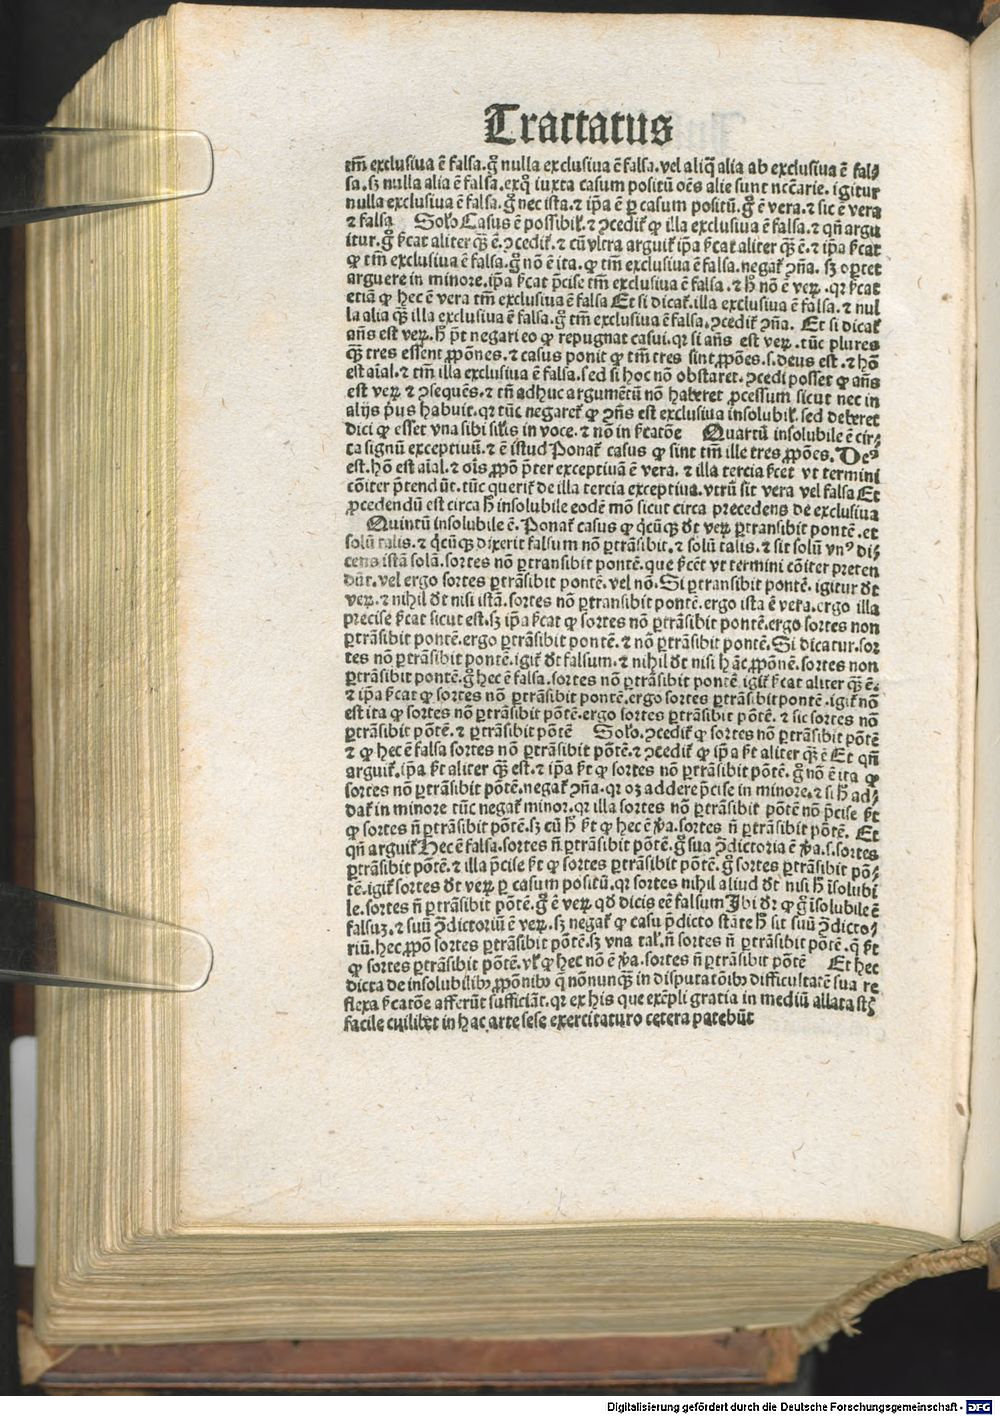 Tractatus
tm̄ exclusiua ē falsa.gͦ nulla exclusiua ē falsa.vel aliq̄ alia ab exclusiua ē fal⸗
sa.sꝫ nulla alia ē falsa.exq̄ iuxta casum positū oēs alie sunt nccārie. igitur
nulla exclusiua ē falsa.gͦ nec ista.⁊ ip̄a ē ꝑ casum positū.gͦ ē vera.⁊ sic ē vera
⁊ falsa Solͦo Casus ē possibilꝭ.⁊ ꝯcedit᷑ ꝙ illa exclusiua ē falsa.⁊ qn̄ argu
itur.gͦ ẜcat aliter qꝫ̄ ē.ꝯcedit᷑.⁊ cū vltra arguit᷑ ip̄a ẜcat aliter qꝫ̄ ē.⁊ ip̄a ẜcat
ꝙ tm̄ exclusiua ē falsa.gͦ nō ē ita.ꝙ tm̄ exclusiua ē falsa.negat᷑ ꝯn̄a. sꝫ oꝑtet
arguere in minore.ip̄a ẜcat p̄cise tm̄ exclusiua ē falsa.⁊ h̄ nō ē veꝝ.qꝛ ẜcat
etiā ꝙ hec ē vera tm̄ exclusiua ē falsa Et si dicat᷑.illa exclusiua ē falsa.⁊ nul
la alia qꝫ̄ illa exclusiua ē falsa.gͦ tm̄ exclusiua ē falsa.ꝯcedit᷑ ꝯn̄a. Et si dicat᷑
an̄s est veꝝ.h̄ p̄t negari eo ꝙ repugnat casui.qꝛ si an̄s est veꝝ.tūc plures
qꝫ̄ tres essent ꝓpōnes.⁊ casus ponit ꝙ tm̄ tres sint ꝓpōes.s.deus est.⁊ hō
est aīal.⁊ tm̄ illa exclusiua ē falsa.sed si hoc nō obstaret.ꝯcedi posset ꝙ an̄s
est veꝝ ⁊ ꝯsequēs.⁊ tn̄ adhuc argumētū nō haberet ꝓcessum sicut nec in
alijs p̄us habuit.qꝛ tūc negaret᷑ ꝙ ꝯn̄s est exclusiua insolubilꝭ.sed deberet
dici ꝙ esset vna sibi sīlis in voce.⁊ nō in ẜcatōe Quartū insolubile ē cir⸗
ca signū exceptiuū.⁊ ē istud Ponat᷑ casus ꝙ sint tm̄ ille tres ꝓpōes.Deꝰ
est.hō est aīal.⁊ oīs ꝓpō p̄ter exceptiuā ē vera.⁊ illa tercia ẜcet vt termini
cōiter p̄tendūt.tūc querit᷑ de illa tercia exceptiua.vtrū sit vera vel falsa Et
ꝓcedendū est circa h̄ insolubile eodē mō sicut circa precedens de exclusiua
Quintū insolubile ē.Ponat᷑ casus ꝙ q̇cūqꝫ dt̄ veꝝ ꝑtransibit pontē.et
solū talis.⁊ q̇cūqꝫ dixerit falsum nō ꝑtrāsibit.⁊ solū talis.⁊ sit solū vnꝰ di⸗
cens istā solā.sortes nō ꝑtransibit pontē.que ẜcet vt termini cōiter preten
dūt.vel ergo sortes ꝑtrāsibit pontē.vel nō.Si ꝑtransibit pontē.igitur dt̄
veꝝ.⁊ nihil dt̄ nisi istā.sortes nō ꝑtransibit pontē.ergo ista ē vera.ergo illa
precise ẜcat sicut est.sꝫ ip̄a ẜcat ꝙ sortes nō ꝑtrāsibit pontē.ergo sortes non
ꝑtrāsibit pontē.ergo ꝑtrāsibit pontē.⁊ nō ꝑtrāsibit pontē.Si dicatur.sor
tes nō ꝑtrāsibit pontē.igit᷑ dt̄ falsum.⁊ nihil dt̄ nisi hāc ꝓpōnē.sortes non
ꝑtrāsibit pontē.gͦ hec ē falsa.sortes nō ꝑtrāsibit pontē igit᷑ ẜcat aliter qꝫ̄ ē.
⁊ ip̄a ẜcat ꝙ sortes nō ꝑtrāsibit pontē.ergo sortes ꝑtrāsibit pontē.igit᷑ nō
est ita ꝙ sortes nō ꝑtrāsibit pōtē.ergo sortes ꝑtrāsibit pōtē.⁊ sic sortes nō
ꝑtrāsibit pōtē.⁊ ꝑtrāsibit pōtē Solͦo.ꝯcedit᷑ ꝙ sortes nō ꝑtrāsibit pōtē
⁊ ꝙ hec ē falsa sortes nō ꝑtrāsibit pōtē.⁊ ꝯcedit᷑ ꝙ ip̄a ẜt aliter qꝫ̄ ē Et qn̄
arguit᷑.ip̄a ẜt aliter qꝫ̄ est.⁊ ip̄a ẜt ꝙ sortes nō ꝑtrāsibit pōtē.gͦ nō ē ita ꝙ
sortes nō ꝑtrāsibit pōtē.negat᷑ ꝯn̄a.qꝛ oꝫ addere p̄cise in minore.⁊ si h̄ ad⸗
dat᷑ in minore tūc negat᷑ minor.qꝛ illa sortes nō ꝑtrāsibit pōtē nō p̄cise ẜt
ꝙ sortes n̄ ꝑtrāsibit pōtē.sꝫ cū h̄ ẜt ꝙ hec ē ꝟa.sortes n̄ ꝑtrāsibit pōtē. Et
qn̄ arguit᷑ Hec ē falsa.sortes n̄ ꝑtrāsibit pōtē.gͦ sua ꝯ̄dictoria ē ꝟa.s.sortes
ꝑtrāsibit pōtē.⁊ illa p̄cise ẜt ꝙ sortes ꝑtrāsibit pōtē.gͦ sortes ꝑtrāsibit pō⸗
tē.igit᷑ sortes dt̄ veꝝ ꝑ casum positū.qꝛ sortes nihil aliud dt̄ nisi h̄ īsolubi
le.sortes n̄ ꝑtrāsibit pōtē.gͦ ē veꝝ.qd̄ dicis eē falsum Ibi dꝛ ꝙ gͦ īsolubile ē
falsuꝫ.⁊ suū ꝯ̄dictoriū ē veꝝ.sꝫ negat᷑ ꝙ casu p̄dicto stāte h̄ sit suū ꝯ̄dicto⸗
riū.hec ꝓpō sortes ꝑtrāsibit pōtē.sꝫ vna tal᷑.n̄ sortes n̄ ꝑtrāsibit pōtē.q̄ ẜt
ꝙ sortes ꝑtrāsibit pōtē.vl᷑ ꝙ hec nō ē ꝟa.sortes n̄ ꝑtrāsibit pōtē Et hec
dicta de insolubilibꝰ ꝓpōnibꝰ q̄ nōnunqꝫ̄ in disputatōibꝰ difficultatē sua re
flexa ẜcatōe afferūt sufficiāt.qꝛ ex his que exēpli gratia in mediū allata st̄
facile cuilibet in hac arte sese exercitaturo cetera patebūt
Digitalisierung gefördert durch die Deutsche Forschungsgemeinschaft - DFG